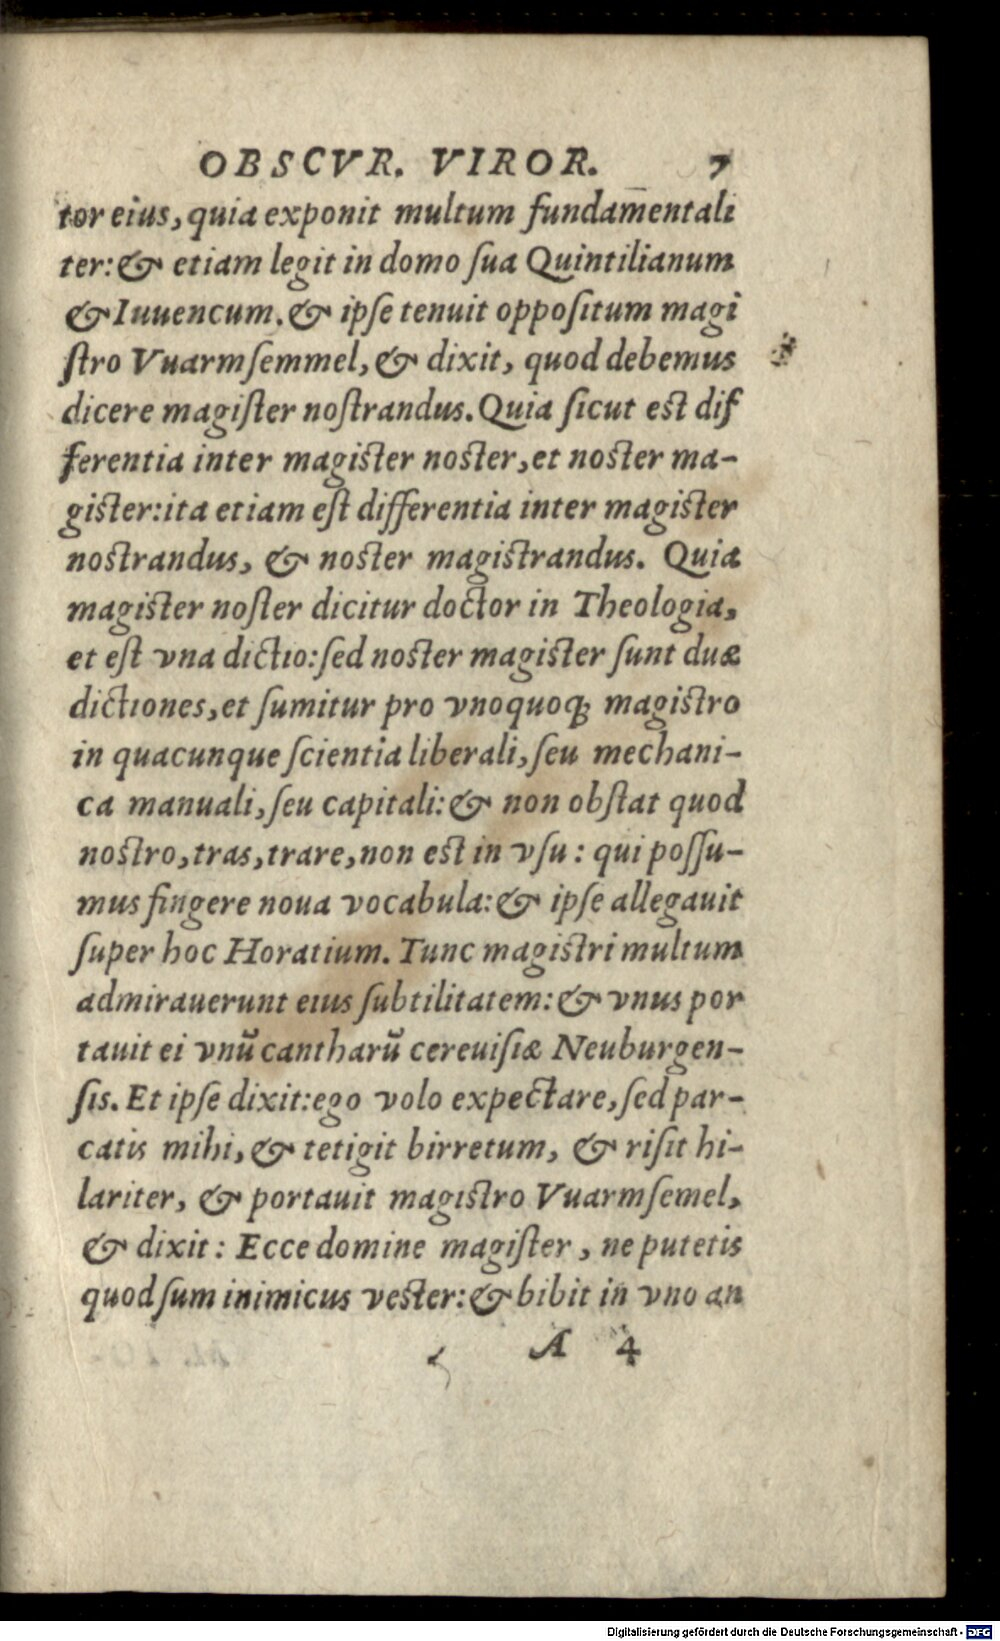 OBSCVR. VIROR. 7
tor eius, quia exponit multum fundamentali
ter: & etiam legit in domo ſua Quintilianum
& Iuuencum. & ipſe tenuit oppoſitum magi
ſtro Vuarmſemmel, & dixit, quod debemus
dicere magiſter noſtrandus. Quia ſicut est dif
ferentia inter magister noster, et noster ma-
gister: ita etiam eſt differentia inter magister
nostrandus, & noster magistrandus. Quia
magister noſter dicitur doctor in Theologia,
et eſt vna dictio: ſed noster magister ſunt duæ
dictiones, et ſumitur pro vnoquoq; magistro
in quacunque ſcientia liberali, ſeu mechani-
ca manuali, ſeu capitali: & non obſtat quod
nostro, tras, trare, non est in vſu: qui poſſu-
mus fingere noua vocabula: & ipſe allegauit
ſuper hoc Horatium. Tunc magistri multum
admirauerunt eius ſubtilitatem: & vnus por
tauit ei vnū cantharū cereuiſiæ Neuburgen-
ſis. Et ipſe dixit: ego volo expectare, ſed par-
catis mihi, & tetigit birretum, & riſit hi-
lariter, & portauit magistro Vuarmſemel,
& dixit: Ecce domine magiſter, ne putetis
quod ſum inimicus vester: & bibit in vno an
A 4
Digitalisierung gefördert durch die Deutsche Forschungsgemeinschaft - DFG